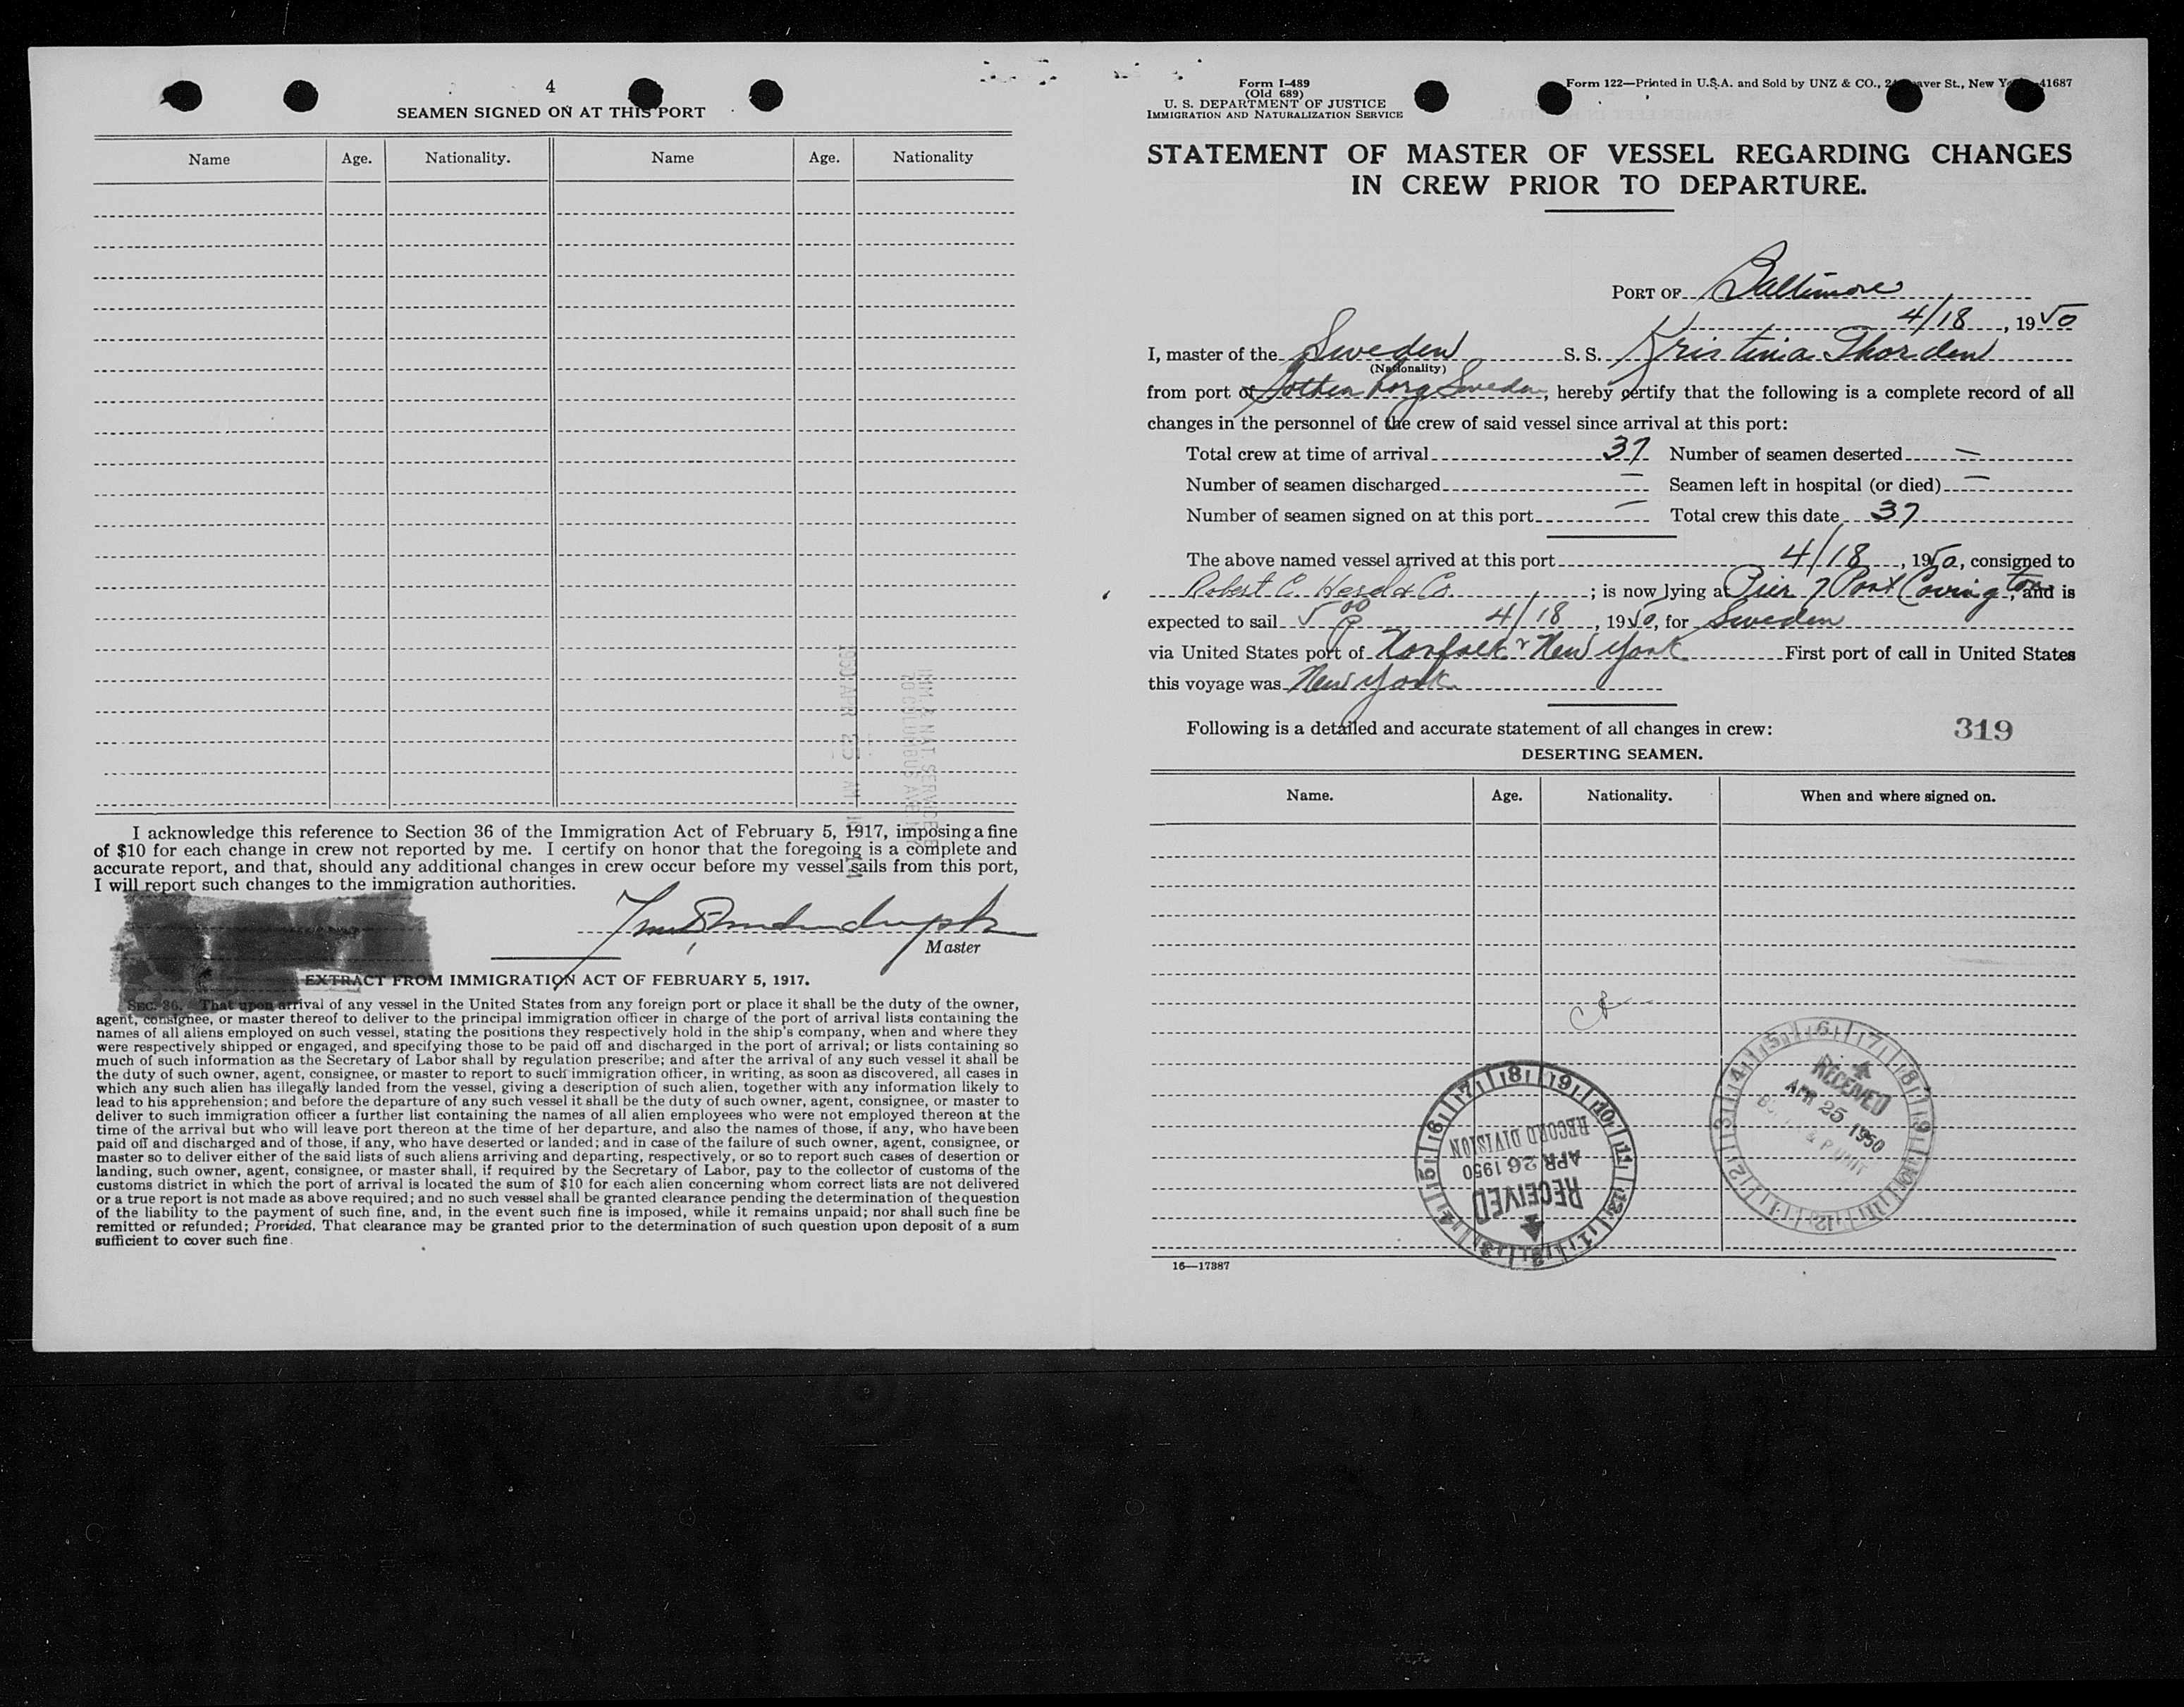 4
SEAMEN SIGNED ON AT THIS PORT
Name Age. Nationality. Name Age. Nationality
1950 APR 25 AM
IMM. & NAT SERVICE
70 COLUMBUS AVE
I acknowledge this reference to Section 36 of the Immigration Act of February 5, 1917, imposing a fine
of $10 for each change in crew not reported by me. I certify on honor that the foregoing is a complete and
accurate report, and that, should any additional changes in crew occur before my vessel sails from this port,
I will report such changes to the immigration authorities.
Master
EXTRACT FROM IMMIGRATION ACT OF FEBRUARY 5, 1917.
SEC. 36. That upon arrival of any vessel in the United States from any foreign port or place it shall be the duty of the owner,
agent, consignee, or master thereof to deliver to the principal immigration officer in charge of the port of arrival lists containing the
names of all aliens employed on such vessel, stating the positions they respectively hold in the ship's company, when and where they
were respectively shipped or engaged, and specifying those to be paid off and discharged in the port of arrival; or lists containing so
much of such information as the Secretary of Labor shall by regulation prescribe; and after the arrival of any such vessel it shall be
the duty of such owner, agent, consignee, or master to report to such immigration officer, in writing, as soon as discovered, all cases in
which any such alien has illegally landed from the vessel, giving a description of such alien, together with any information likely to
lead to his apprehension; and before the departure of any such vessel it shall be the duty of such owner, agent, consignee, or master to
deliver to such immigration officer a further list containing the names of all alien employees who were not employed thereon at the
time of the arrival but who will leave port thereon at the time of her departure, and also the names of those, if any, who have been
paid off and discharged and of those, if any, who have deserted or landed; and in case of the failure of such owner, agent, consignee, or
master so to deliver either of the said lists of such aliens arriving and departing, respectively, or so to report such cases of desertion or
landing, such owner, agent, consignee, or master shall, if required by the Secretary of Labor, pay to the collector of customs of the
customs district in which the port of arrival is located the sum of $10 for each alien concerning whom correct lists are not delivered
or a true report is not made as above required; and no such vessel shall be granted clearance pending the determination of the question
of the liability to the payment of such fine, and, in the event such fine is imposed, while it remains unpaid; nor shall such fine be
remitted or refunded; Provided, That clearance may be granted prior to the determination of such question upon deposit of a sum
sufficient to cover such fine.
Form I-489
(Old 689)
U. S. DEPARTMENT OF JUSTICE
IMMIGRATION AND NATURALIZATION SERVICE
Form 122—Printed in U.S.A. and Sold by UNZ & CO., St., New 41687
STATEMENT OF MASTER OF VESSEL REGARDING CHANGES
IN CREW PRIOR TO DEPARTURE.
PORT OF Baltimore
4/18, 1950
I, master of the Sweden S. S. Kristina Thorden
(Nationality)
from port of Gothenborg Sweden, hereby certify that the following is a complete record of all
changes in the personnel of the crew of said vessel since arrival at this port:
Total crew at time of arrival 37 Number of seamen deserted —
Number of seamen discharged — Seamen left in hospital (or died) —
Number of seamen signed on at this port — Total crew this date 37
The above named vessel arrived at this port 4/18, 1950, consigned to
Robert C. Herd & Co. ; is now lying at Pier 7 Port Covington, and is
expected to sail 5 00 P 4/18, 1950, for Sweden
via United States port of Norfolk & New York First port of call in United States
this voyage was New York
Following is a detailed and accurate statement of all changes in crew: 319
DESERTING SEAMEN.
Name. Age. Nationality. When and where signed on.
RECEIVED
APR 26 1950
RECORD DIVISION
RECEIVED
APR 25 1950
& P UNIT
16—17387